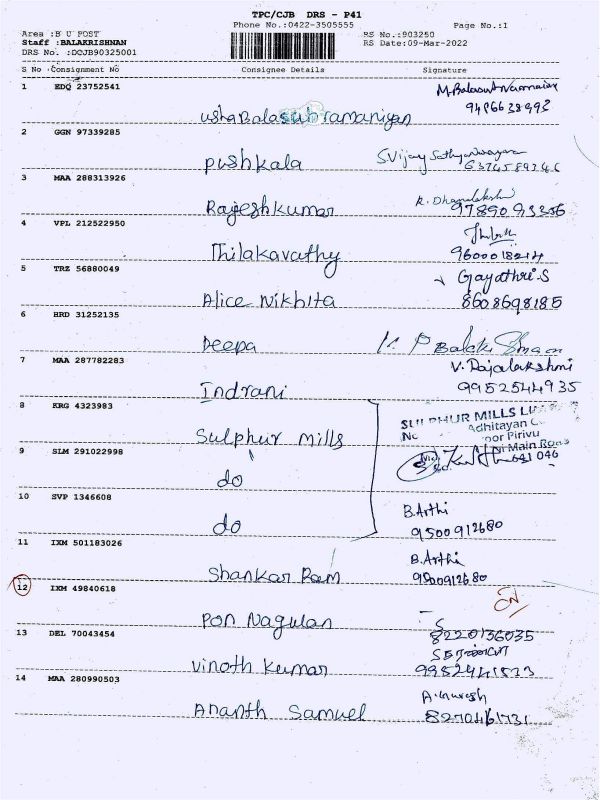 TPC/CJB DRS - P41
Phone No.:0422-3505555
Page No.:1
Area :B U POST
RS No.:903250
Staff :BALAKRISHNAN
RS Date:09-Mar-2022
DRS No. :DCJB90325001
S No Consignment No Consignee Details Signature
1 EDQ 23752541
ushaBalasubramaniyan
2 GGN 97339285
pushkala
3 MAA 288313926
Rajeshkumar
9789093356
4 VPL 212522950
Thilakavathy
9600018214
5 TRZ 56880049
Gayathri.S
Alice Nikhita 8608698185
6 HRD 31252135
Deepa
7 MAA 287782283
V. Rajalakshmi
Indrani 9952544935
8 KRG 4323983
SULPHUR MILLS
Adhitayan
Sulphur mills
oor Pirivu
9 SLM 291022998
Main Road
641 046
do
10 SVP 1346608
B.Arthi
do 9500912680
11 IXM 501183026
B.Arthi
Shankar Ram 9500912680
12 IXM 49840618
Pon Nagulan
13 DEL 70043454 8220136035
Vinoth Kumar
14 MAA 280990503
Ananth Samuel 8270461731